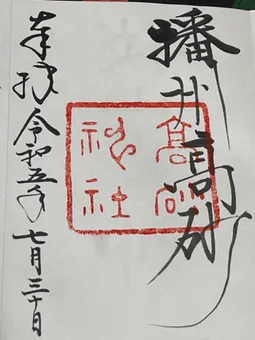 播州高砂
高砂
神社
奉拝
令和五年七月三十日